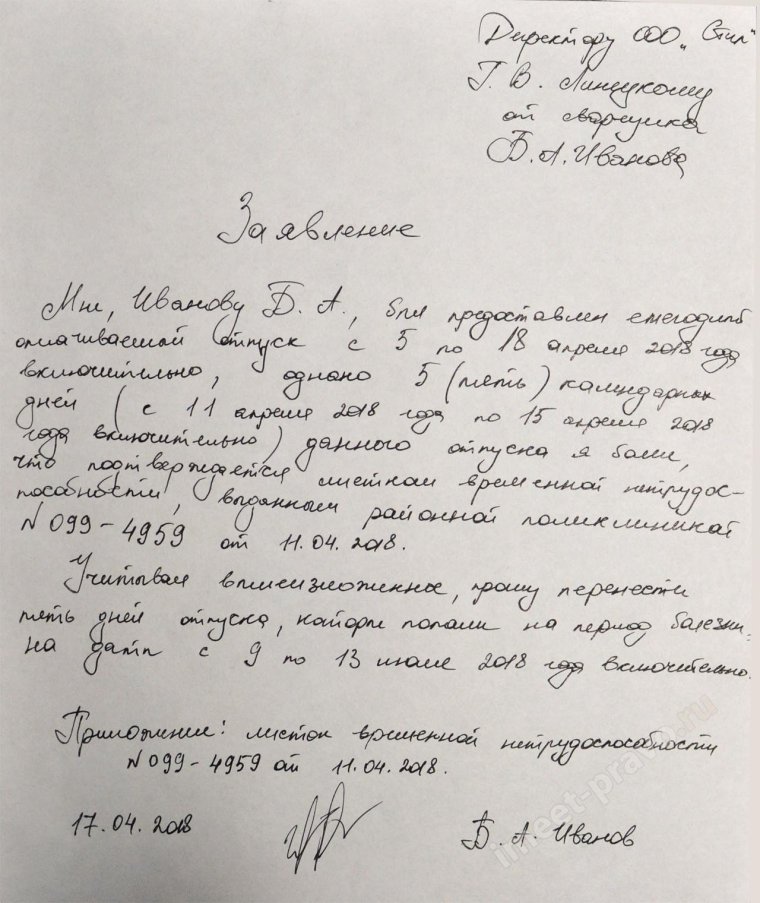 Директору ООО „Стил"
Г. В. Липукому
от сварщика
Б. А. Иванова
Заявление
Мне, Иванову Б. А., был предоставлен ежегодный
оплачиваемый отпуск с 5 по 18 апреля 2018 года
включительно, однако 5 (пять) календарных
дней (с 11 апреля 2018 года по 15 апреля 2018
года включительно) данного отпуска я болел,
что подтверждается листком временной нетрудос-
пособности, выданным районной поликлиникой
N 099-4959 от 11.04.2018.
Учитывая вышеизложенное, прошу перенести
пять дней отпуска, которые попали на период болезни,
на даты с 9 по 13 июля 2018 года включительно.
Приложение: листок временной нетрудоспособности
N 099-4959 от 11.04.2018.
17.04.2018 Б. А. Иванов